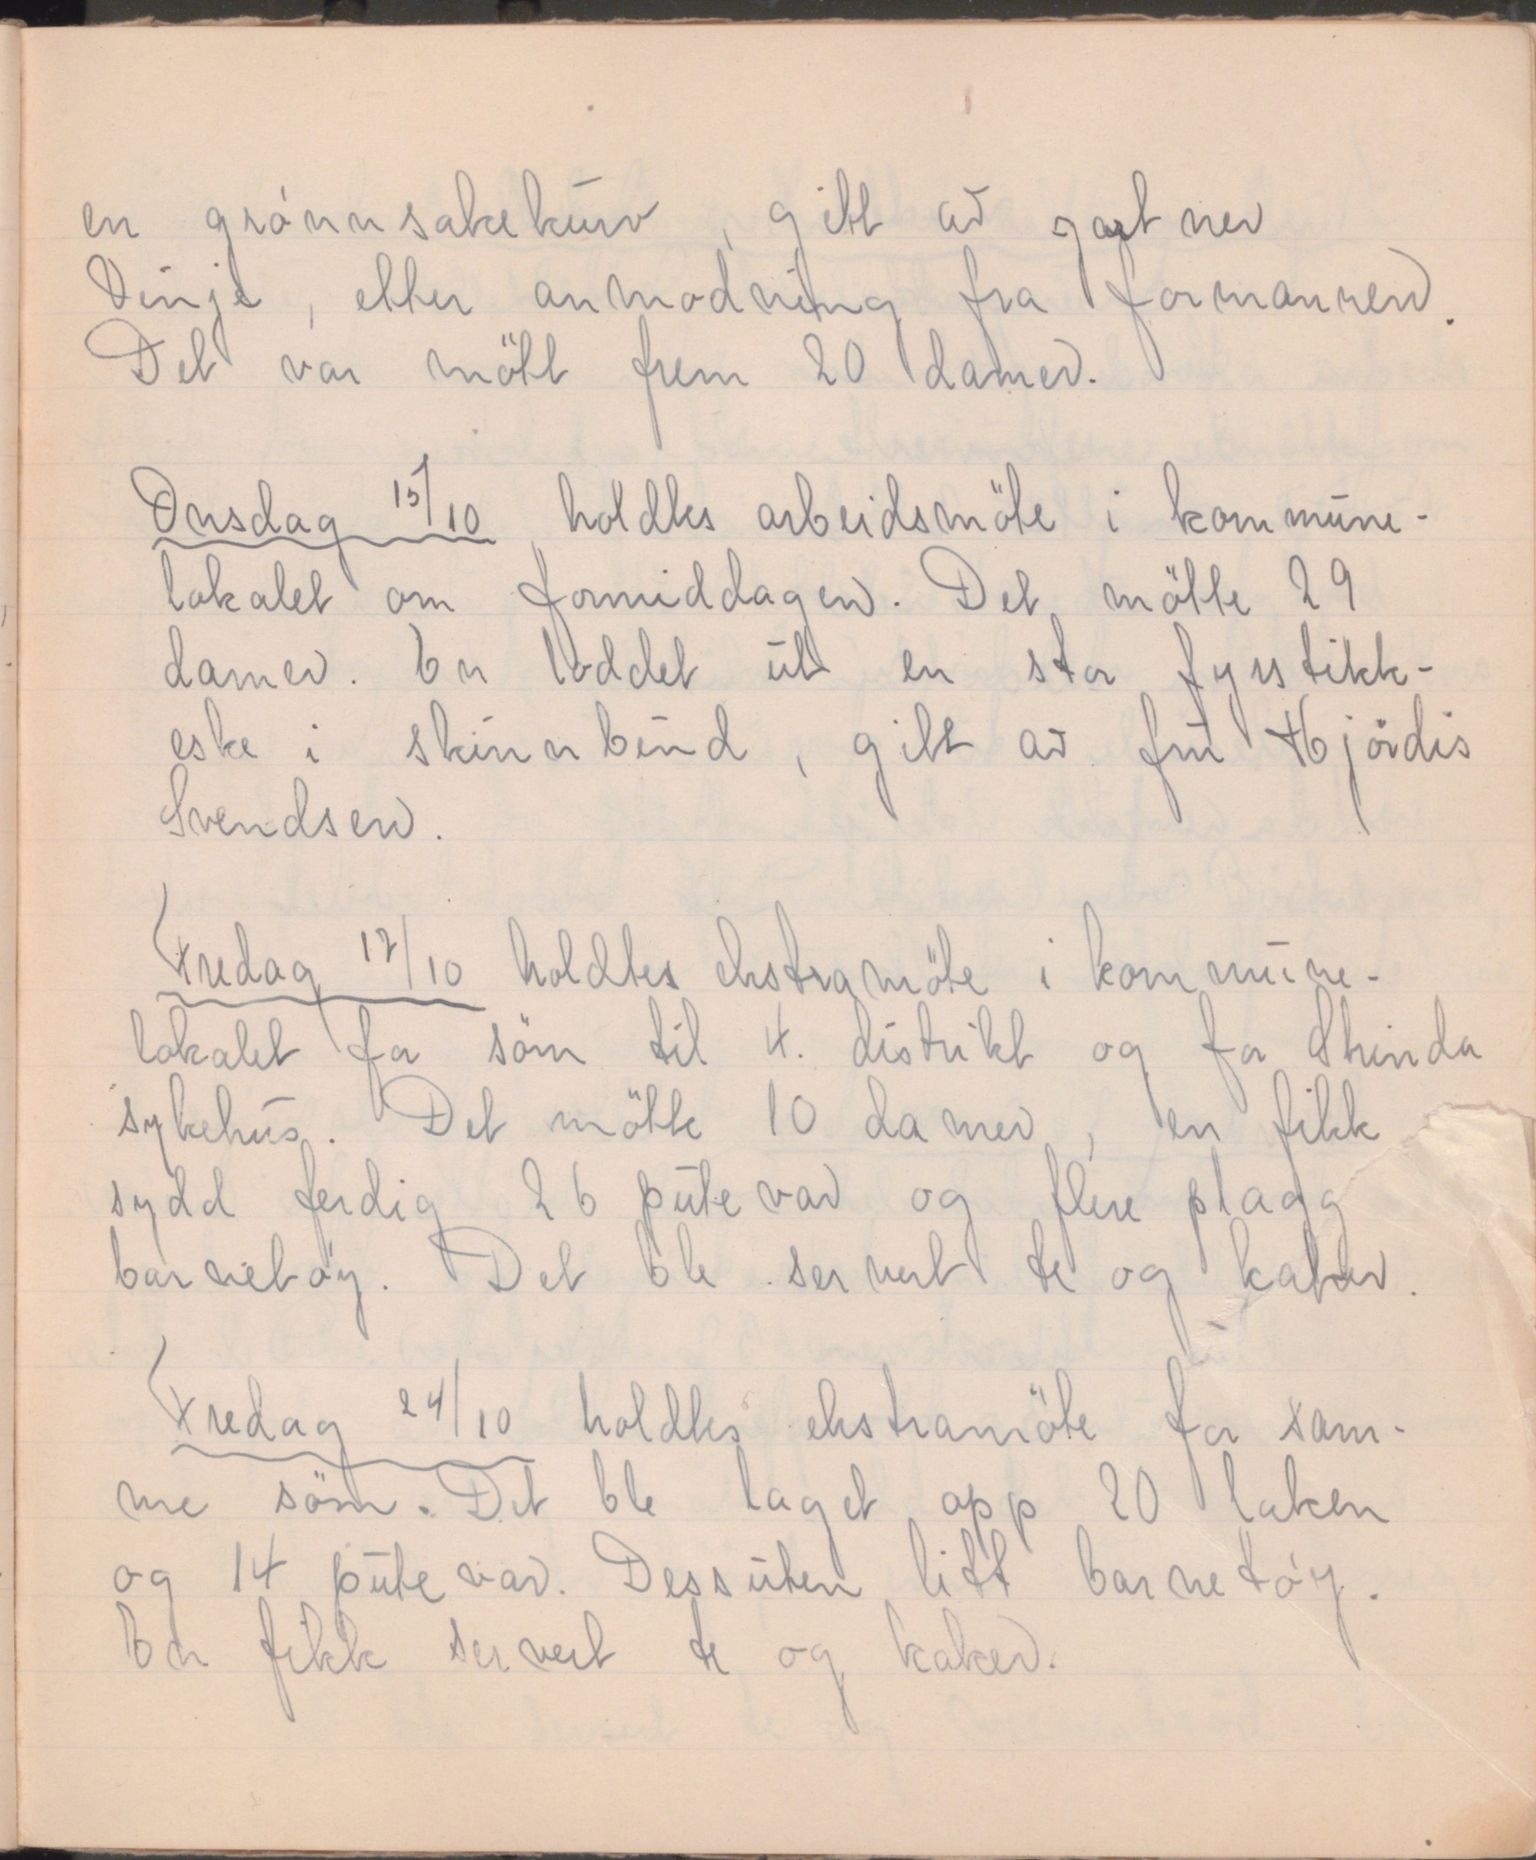 en grønnsakekurv, gitt av gartner
Vinje, etter anmodning fra formannen.
Det var mött frem 20 damer.
Onsdag 15/10 holdtes arbeidsmöte i kommune-
lokalet om formiddagen. Det mötte 29
damer. En loddet ut en stor fyrstikk-
eske i skinnbind, gitt av fru Hjördis
Svendsen.
Fredag 17/10 holdtes ekstramöte i kommune-
lokalet for söm til 4. distrikt og for Strinda
sykehus. Det mötte 10 damer, en fikk
sydd ferdig 26 putevar og flere plagg
barnetøy. Det ble servert te og kaker.
Fredag 24/10 holdtes ekstramöte for sam-
me söm. Det ble laget opp 20 laken
og 14 putevar. Dessuten litt barnetøy.
En fikk servert te og kaker.